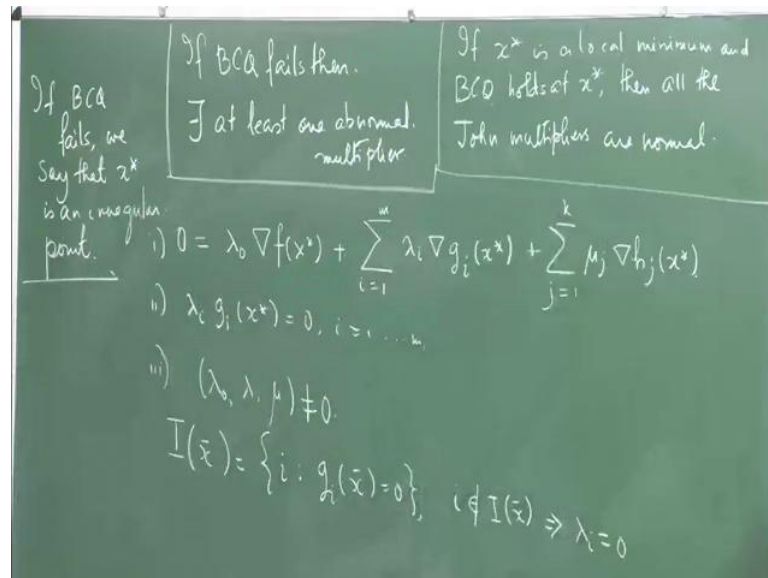 If BCQ
fails, we
say that x*
is an irregular
point.
If BCQ fails then.
∃ at least one abnormal.
multiplier
If x* is a local minimum and
BCQ holds at x*, then all the
John multipliers are normal.
i) 0 = λ₀ ∇f(x*) + ∑_{i=1}^{m} λᵢ ∇gᵢ(x*) + ∑_{j=1}^{k} μⱼ ∇hⱼ(x*)
ii) λᵢ gᵢ(x*) = 0, i = 1 .... m.
iii) (λ₀, λ, μ) ≠ 0.
I(x̄) = {i : gᵢ(x̄) = 0}, i ∉ I(x̄) ⇒ λᵢ = 0